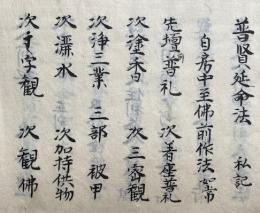 普賢延命法 私記
自房中至佛前作法如常
先壇普礼 次著座普礼
次塗香 次三密觀
次浄三業 三部 被甲
次灑水 次加持供物
次字觀 次觀佛